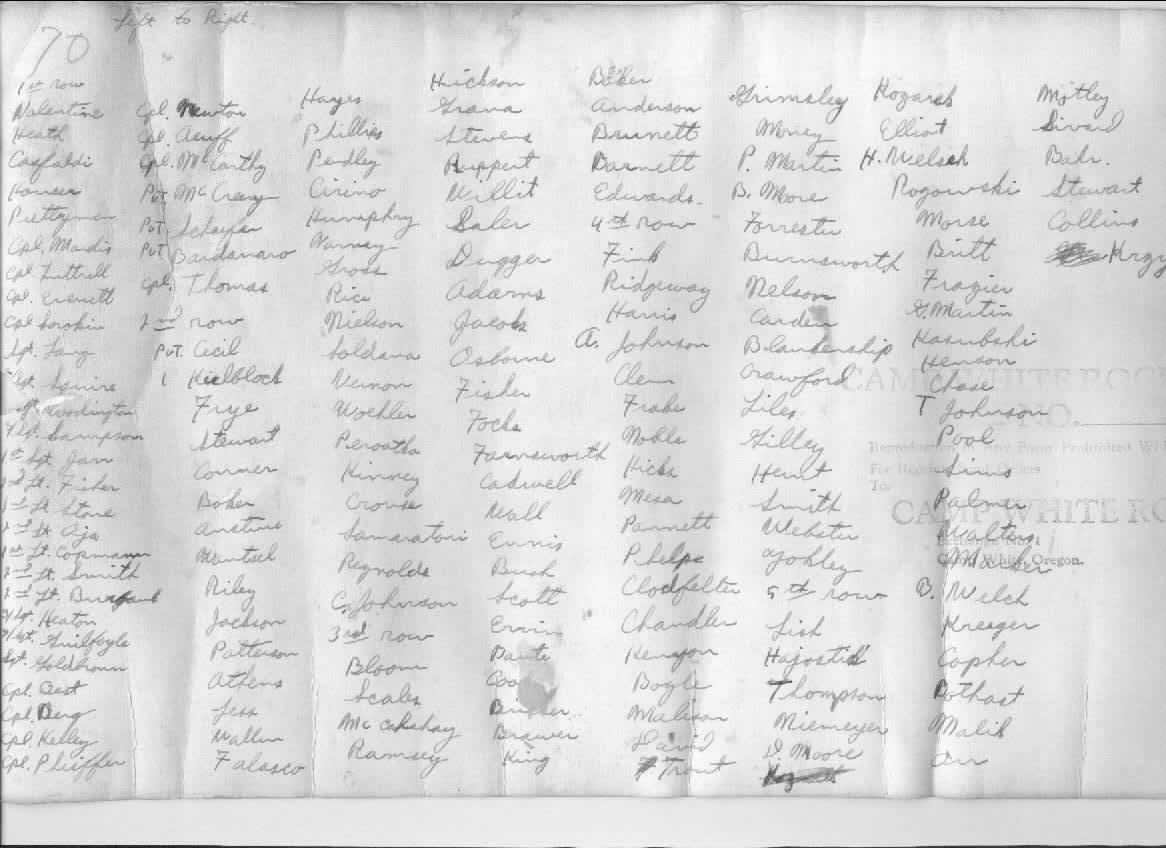 Left to Right.
70
1st row
Valentine
Heath
Casfaldi
Houser
Prettyman
Cpl. Mardis
Cpl. Luttrell
Cpl. Everett
Cpl. Sorokin
Sgt. Lang
Sgt. Squire
Washington
Sgt. Sampson
1st Sgt. Jarr
2nd Lt. Fisher
1st Lt. Stone
2nd Lt. Aja
1st Lt. Copemann
2nd Lt. Smith
2nd Lt.
Sgt. Heaton
Sgt. Guilfoyle
Sgt. Goldbronn
Cpl. Cest
Cpl. Berg
Cpl. Kelley
Cpl. Pheiffer
Cpl. Newton
Cpl. Aruff
Cpl. McCarthy
Pvt. McCreary
Pvt. Schafer
Pvt Bardanaro
Cpl. Thomas
2nd row
Pvt. Cecil
Kielblock
Frye
Stewart
Conner
Baker
Anstine
Wantsel
Riley
Jackson
Patterson
Athens
Jess
Wallin
Falasco
Hayes
Phillips
Pendley
Cirino
Humphry
Varney
Gross
Rice
Nielson
Soldana
Vernon
Woehler
Peroatka
Kinney
Crouse
Samaratoni
Reynolds
C. Johnson
3rd row
Bloom
Scales
McCakshay
Ramsey
Hickson
Grana
Stevens
Ruppert
Willit
Saler
Dugger
Adams
Jacobs
Osborne
Fisher
Focks
Farnsworth
Caswell
Wall
Ennis
Bush
Scott
Ervin
Daute
Brawer
King
Baker
Anderson
Brunett
Barnett
Edwards.
4th row
Fink
Ridgeway
Harris
A. Johnson
Clem
Frake
Noble
Hicks
Mesa
Parnett
Phelps
Clodfelter
Chandler
Kenyon
Bogle
Malison
David
Trout
Grimsley
Money
P. Martin
B. Moore
Forrester
Burnsworth
Nelson
Carden
Blankenship
Crawford
Liles
Gilley
Hewlt
Smith
Webster
Yohley
5th row
Lish
Hajostid
Thompson
Niemeyer
D. Moore
Kozarek
Elliot
H. Welsch
Rogowski
Morse
Britt
Frazier
G. Martin
Kasubski
Henson
Chase
T Johnson
Pool
Sims
Palmer
Walters
B. Welch
Kreager
Copher
Pothast
Malik
Orr
Motley
Sivard
Bahr.
Stewart
Collins
Krzy
CAMP WHITE ROC
NO.
For
To:
CAMP WHITE RO
Camp White, Oregon.